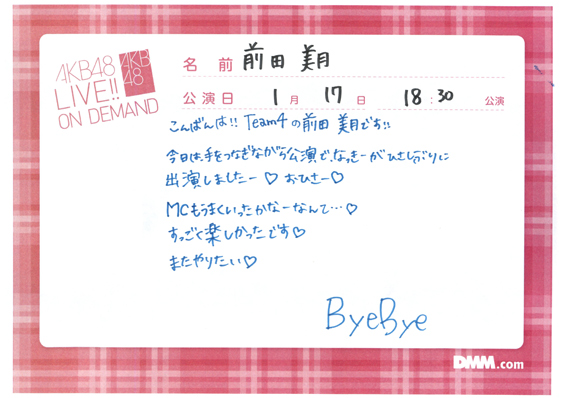 AKB48
LIVE!!
ON DEMAND
AKB
48
名 前 前田 美月
公演日 1月 17日 18:30 公演
こんばんは!! Team4の前田 美月です!!
今日は、手をつなぎながら公演で、なっきーがひさしぶりに
出演しましたー♡ おひさー♡
MCもうまくいったかなーなんて…♡
すっごく楽しかったです♡
またやりたい♡
ByeBye
DMM.com